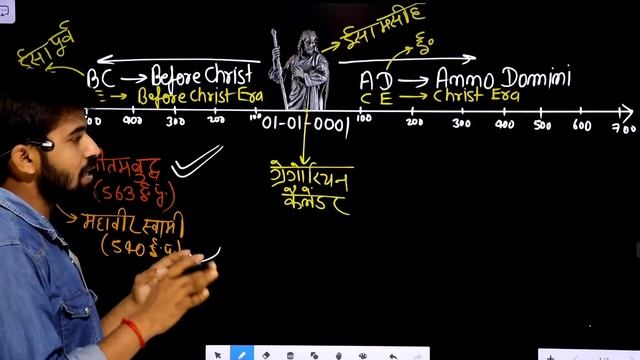 ईसा पूर्व
ईसा मसीह
ई०
BC → Before Christ
AD → Anno Domini
Before Christ Era
CE → Christ Era
400 300 200 100 01-01-0001 100 200 300 400 500 600 700
ग्रेगोरियन
कैलेंडर
(563 ई.पू.)
→ महावीर स्वामी
(540 ई.पू.)